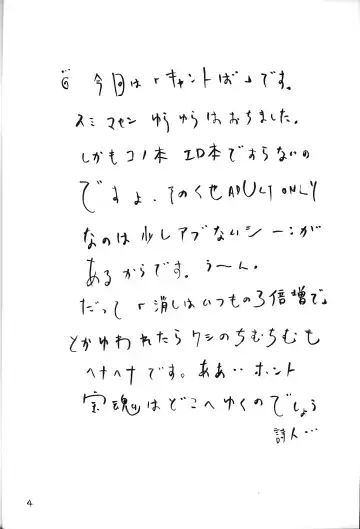 今回は「キャントば」です。
スミマセン ゆうゆうはおちました。
しかもコノ本 エロ本ですらないの
ですよ、そのくせADULT ONLY
なのは少しアブないシーンが
あるからです。うーん。
だって「消しはいつもの3倍増で」
とかゆわれたらワシのちむちむも
ヘナヘナです。ああ‥ホント
宝魂はどこへゆくのでしょう
詩人…
4